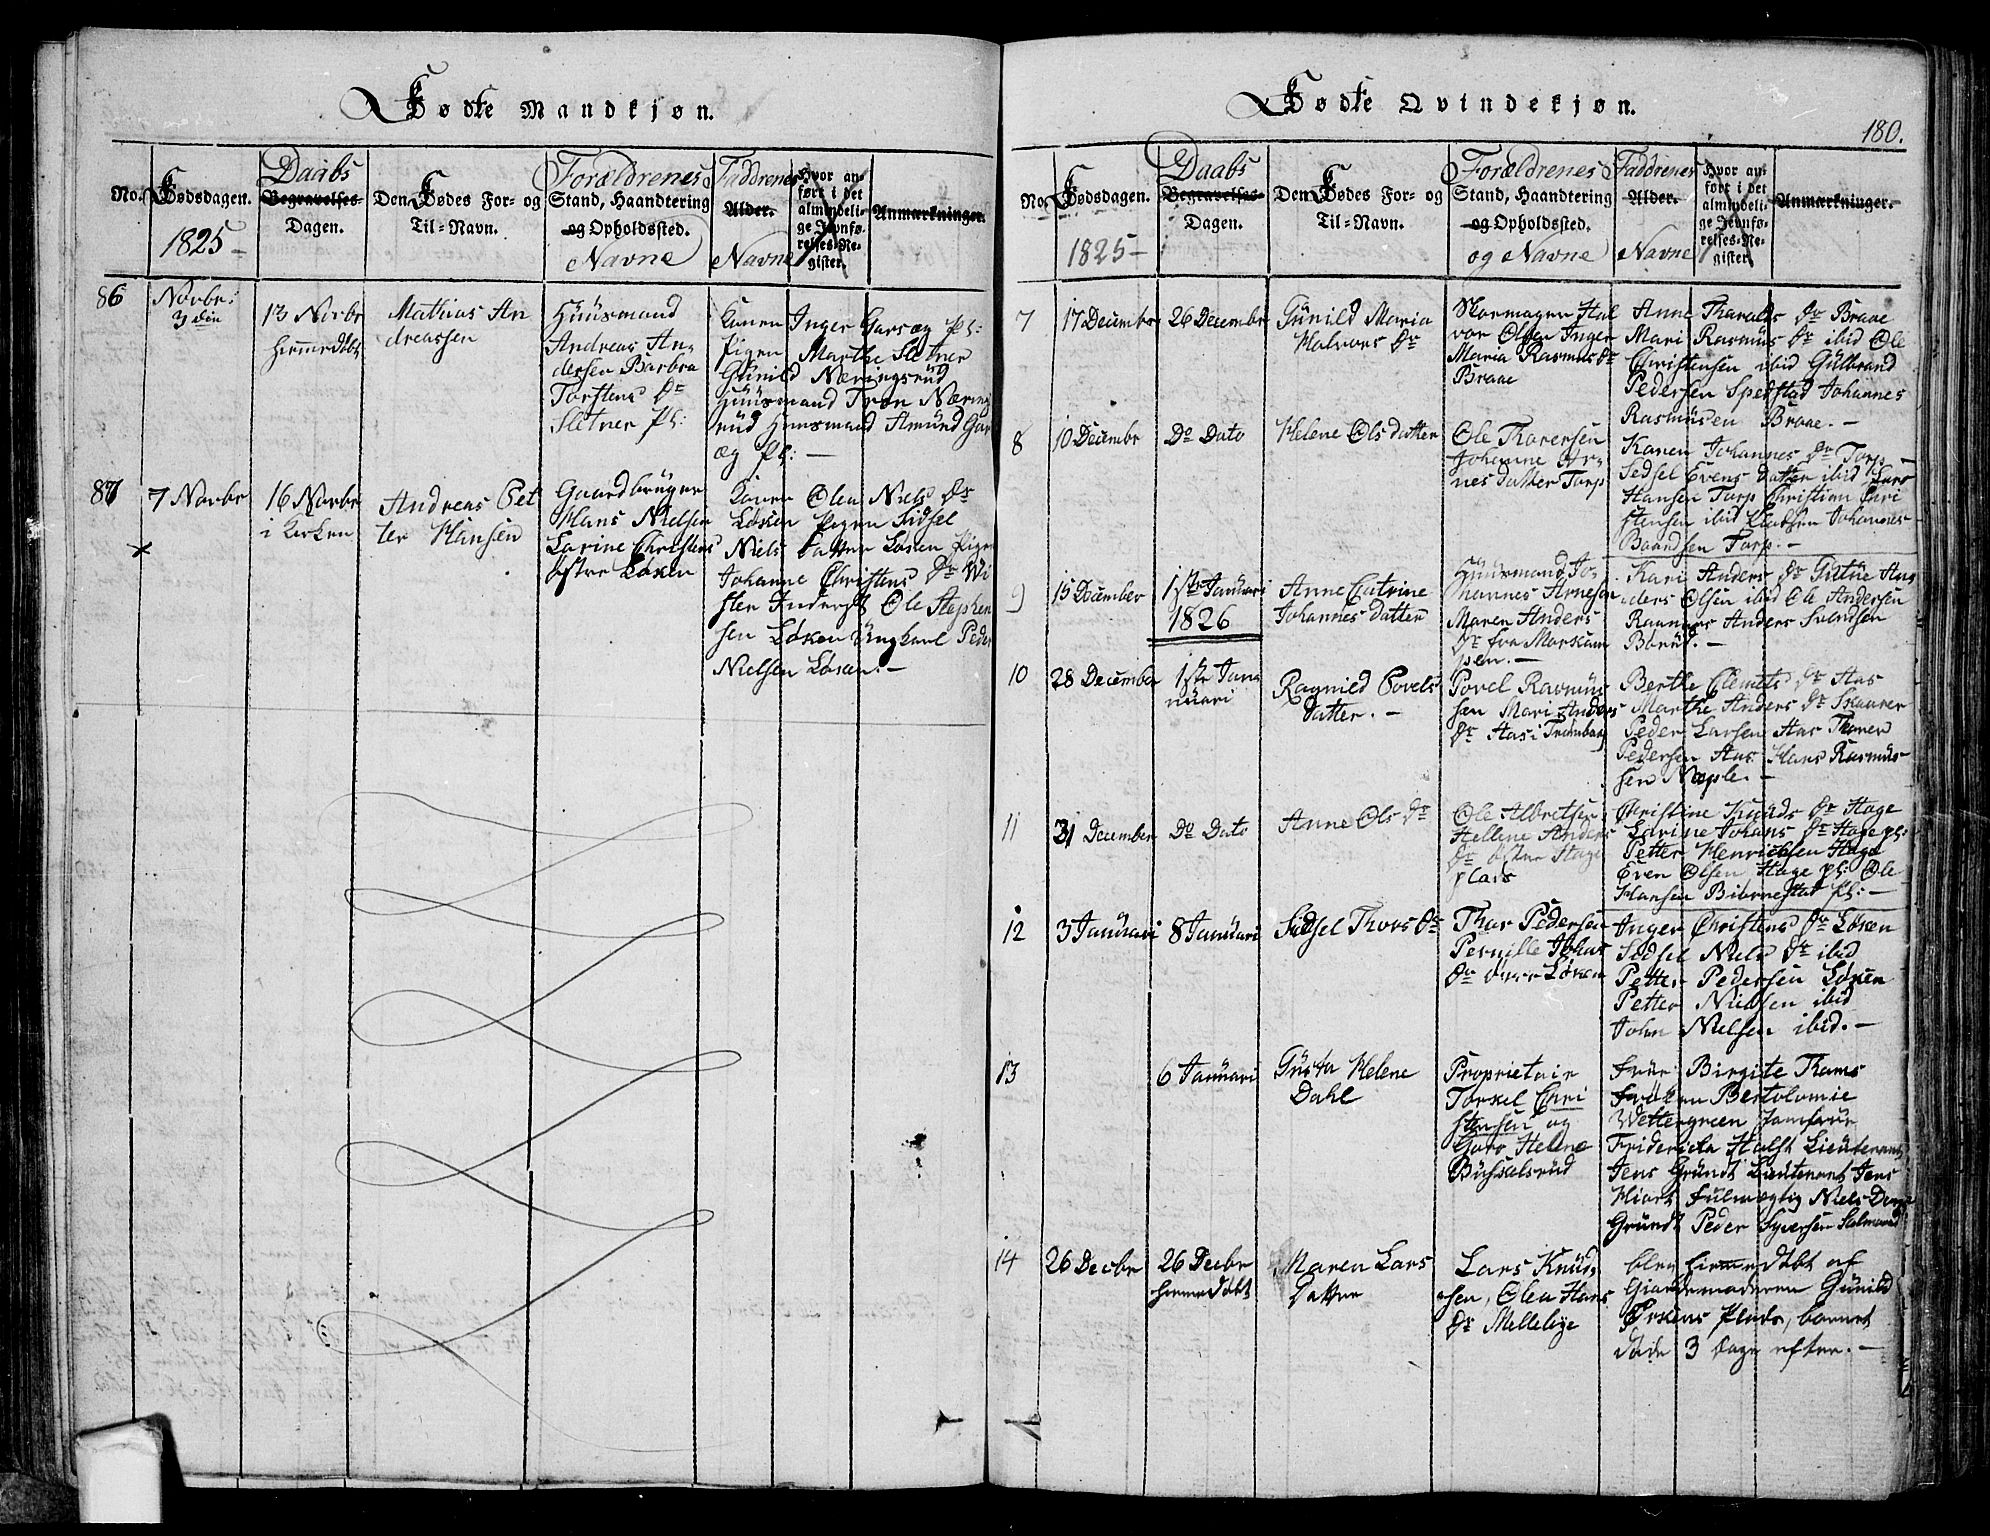 Fødte Mandkjøn.
No.
Fødsdagen.
1825
Daabs
Begravelses-
Dagen.
Den Fødes For- og
Til-Navn.
Forældrenes
Stand, Haandtering
og Opholdssted.
Navne
Faddrenes
Alder.
Navne
Hvor an-
ført i det
almindeli-
ge Jevnfø-
relses-Re-
gister.
Anmærkninger.
86
Novbr:
3 din
13 Novbr
hiemmedøbt
Mathias An
dreassen
Huusmand
Andreas An-
dersen Barbra
Torstens Dr
Sletner Pl:
Konen Inger Garsæg Pl:
Pigen Marthe Sletner
Gunild Næringsrud
Huusmand Tron Næring
rud Huusmand Amund Gar
æg Pl: —
87
7 Novbr
16 Novbr
i Kirken
Andreas Pet
ter Hansen
Gaardbruger
Hans Nielsen
Larine Christens
østre Løken
Konen Olea Niels Dr
Løken Pigen Sidsel
Niels Datter Løken Pigen
Johanne Christens Dr Wi
ster Ole Stephen
sen Løken Ungkarl Peder
Nielsen Løken. —
Fødte Qvindekjøn.
180.
No.
Fødsdagen.
1825 —
Daabs
Begravelses-
Dagen.
Den Fødes For- og
Til-Navn.
Forældrenes
Stand, Haandtering
og Opholdssted.
og Navne
Faddrenes
Alder.
Navne
Hvor an-
ført i det
almindeli-
ge Jevnfø-
relses-Re-
gister.
Anmærkninger.
7
17 Decembr
26 Decembr
Gunild Maria
Halvors Dr
Hal
vor Olsen Inger
Maria Rasmus Dr
Braae
Anne Tharalds Dr Braae
Mari Rasmus Dr ibid Ole
Christensen ibid Gulbrand
Pedersen Johannes
Rasmusen Braae. —
8
10 Decembr
Do Dato
Helene Ols Datter
Ole Thoresen
Johanne Ar-
nes Datter Torp
Karen Johannes Dr Torp
Sidsel Evens Datter ibid Lars
Hansen Torp Christian Chri
stensen ibid Johannes
Baardsen Torp. —
9
15 December
1ste Januari
1826
Anne Catrine
Johannes Datter
Huusmand Jo-
hannes Arnesen
Maren Anders
Dr fra
pen. —
Kari Anders Dr An
ders Olsen ibid Ole Andersen
Anders Svendsen
Borud. —
10
28 December
1ste Jan
uuari
Ragnild Povels
Datter. —
Povel Rasmus
sen Mari Anders
Dr Aas i Trømborg
Berthe Clemets Dr Aas
Marthe Anders Dr Skaarer
Peder Larsen Aas
Pedersen Aas Hans Rasmus
sen Næple. —
11
31 December
Do Dato
Anne Ols Dr
Ole Albretsen
Hellene Anders
Dr østre Hage
plads
Christine Knuds Dr Hage
Larine Johans Dr Hage pl:
Petter Henrichsen Hage
Even Olsen Hage pl: Ole
Hansen Biørnestad Pl: —
12
3 Januari
8 Januari
Sidsel Thors Dr
Thor Pedersen
Pernille Johns
Dr Løken
Inger Christens Dr Løken
Sidsel Niels Dr ibid
Petter Pedersen Løken
Petter Nielsen ibid
John Nielsen ibid. —
13
6 Januari
Gusta Helene
Dahl
Proprietair
Torkel Chri
stensen og
Helene
Buskelsrud
Frue Birgite Thams
Frøken Bertolomie
Wettergreen Jomfrue
Fridericka Holst Lieutenant
Jens Grundt Lieutenant Jens
Hiort fulmægtig Niels
Grundt Peder Syversen
14
26 Decbr
26 Decbr
hiemmedøbt
Maren Lars
Datter
Lars Knud,
sen, Olea Hans
Dr Mellebye
blev hiemmedøbt af
Giordemoderen Gunild
Plads, barnet
døde 3 Dage efter. —